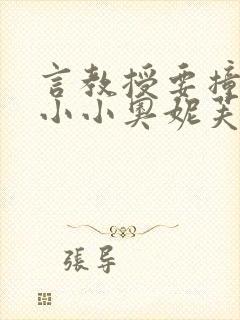 言教授要撞
小小奥妮芙
張导